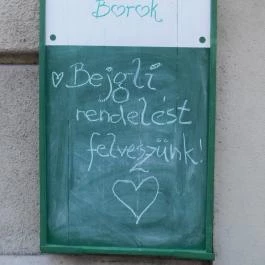 Borok
Bejgli
rendelést
felveszünk!